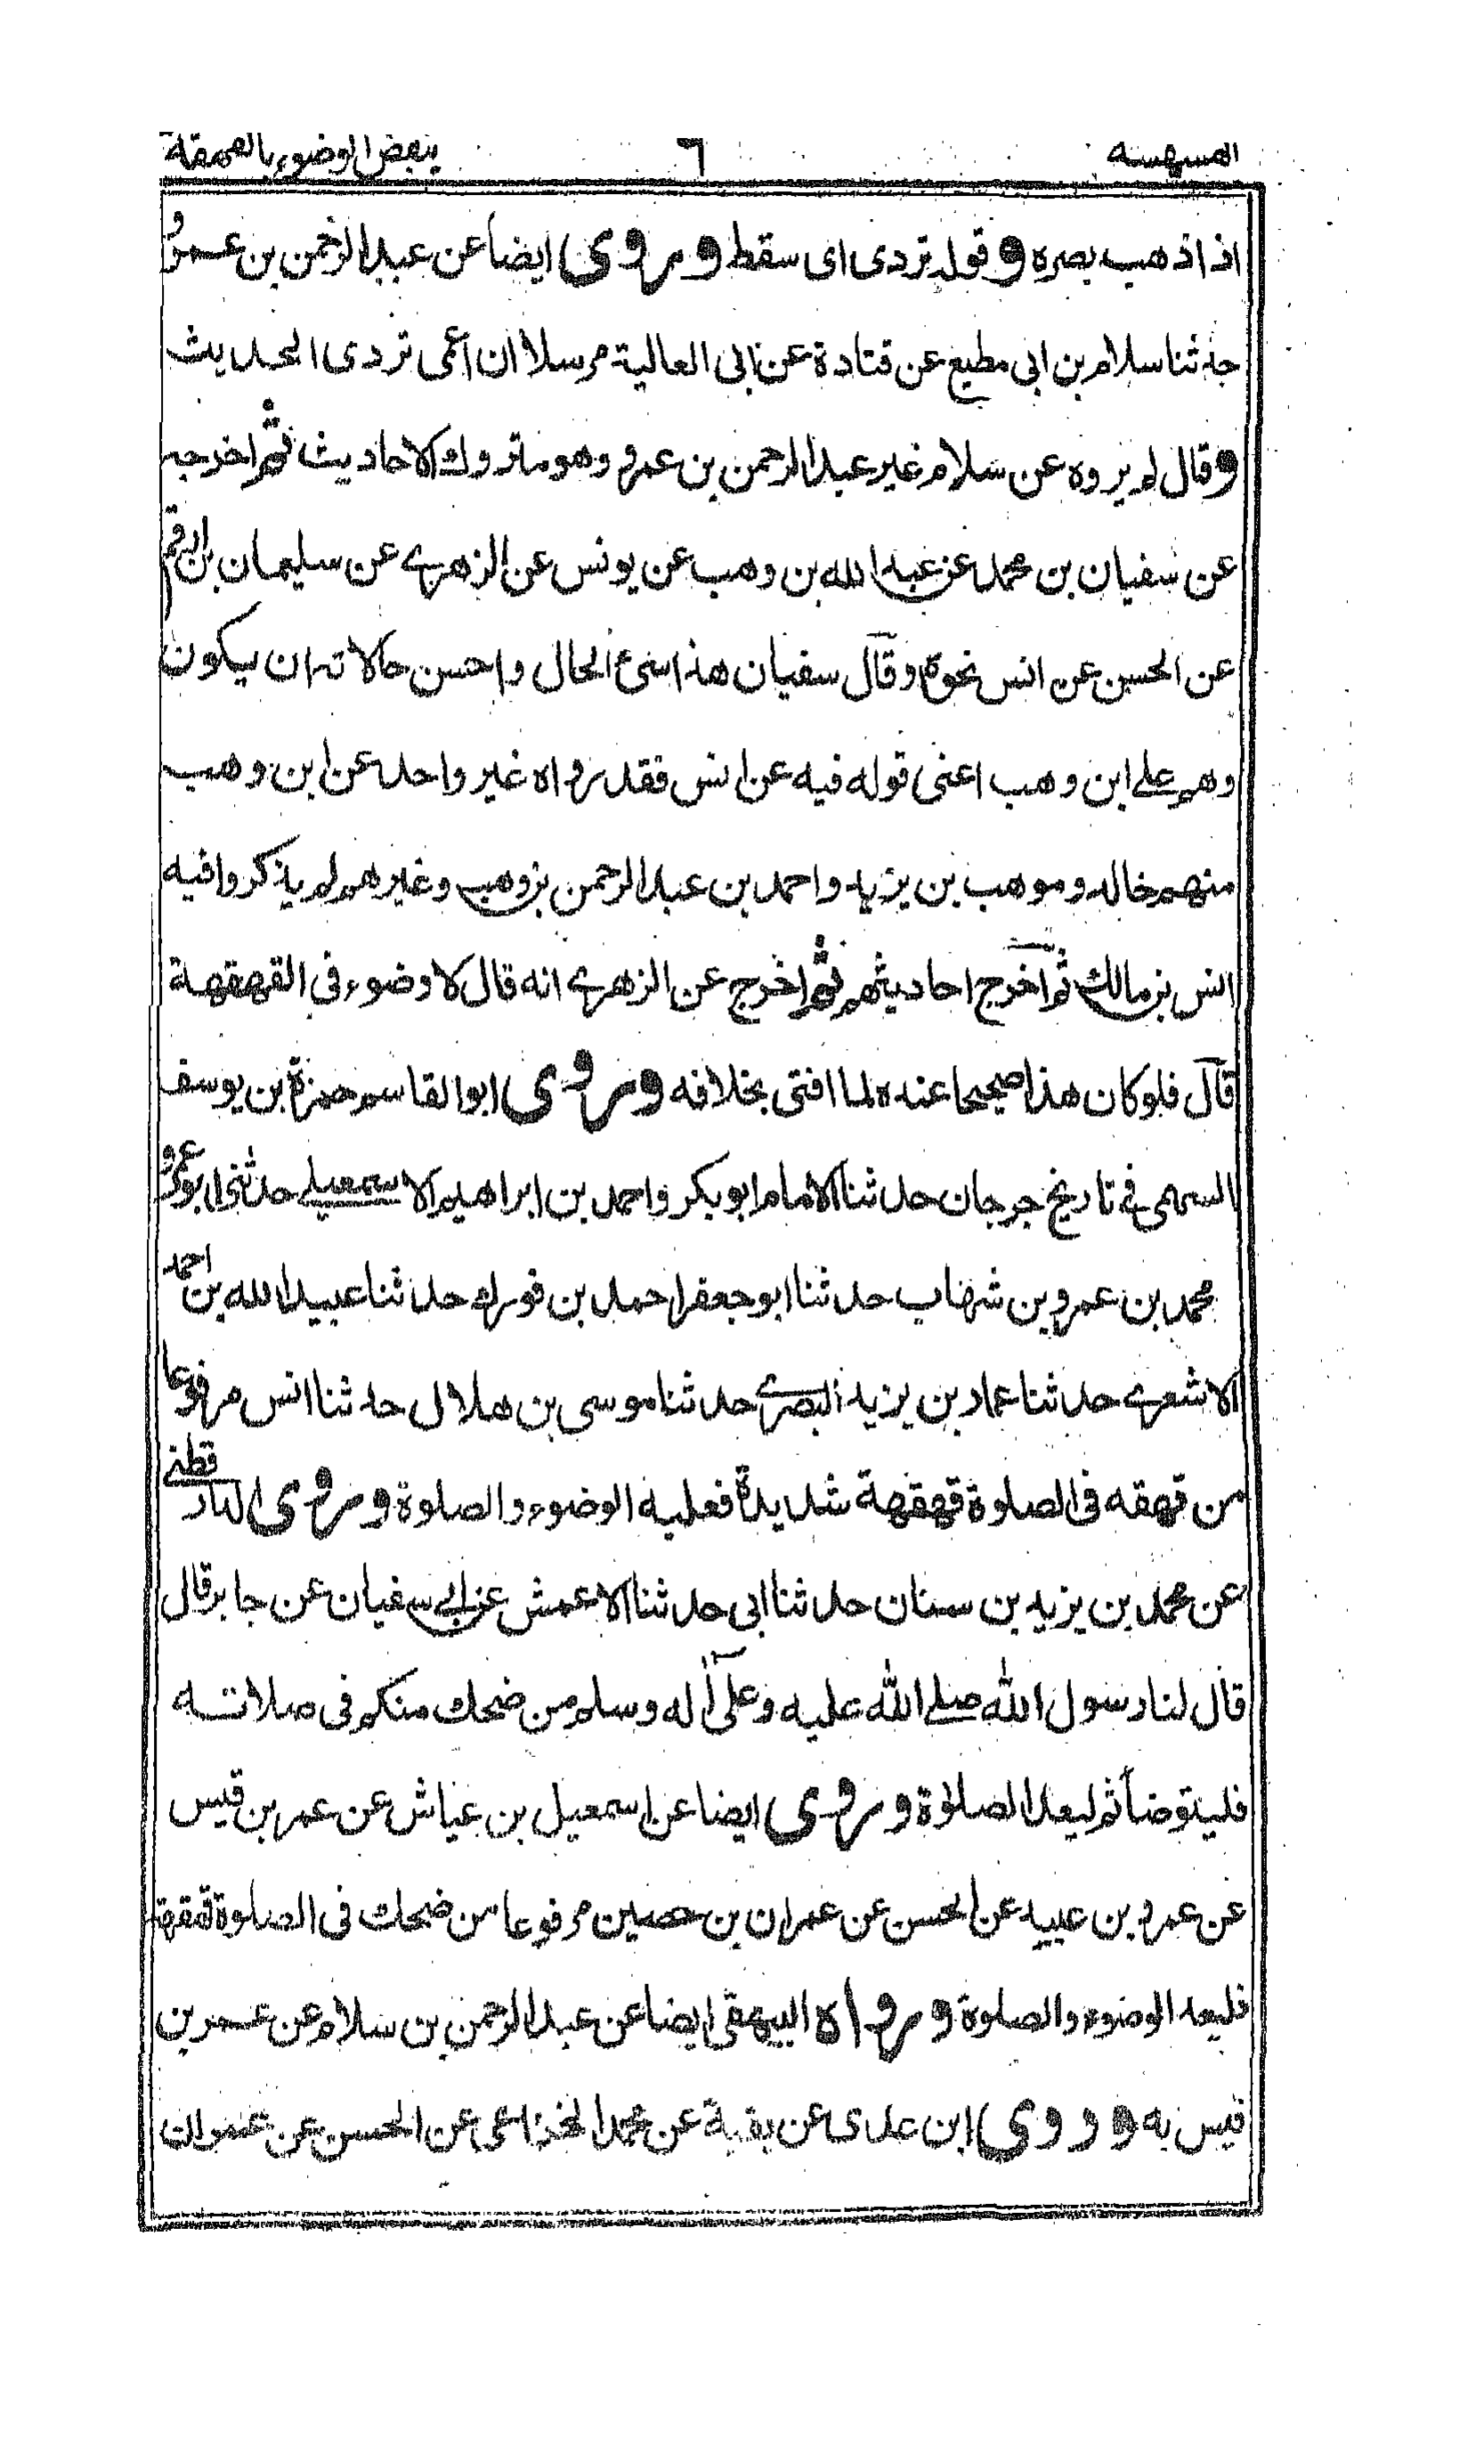 الهسهسة ٦ بنقض الوضوء بالقهقهة
اذا ذهب بصره وقوله تردى اى سقط وروى ايضا عن عبد الرحمن بن عمرو
حدثنا سلام بن ابى مطيع عن قتادة عن ابى العالية مرسلا ان اعمى تردى الحديث
وقال لم يروه عن سلام غير عبد الرحمن بن عمرو وهو متروك الاحاديث ثم اخرجه
عن سفيان بن محمد عن عبد الله بن وهب عن يونس عن الزهرے عن سليمان بن ارقم
عن الحسن عن انس نحوه وقال سفيان هذا سئ الحال واحسن حالاته ان يكون
وهم على ابن وهب اعنى قوله فيه عن انس فقد رواه غير واحد عن ابن وهب
منهم خالد وموهب بن يزيد واحمد بن عبد الرحمن بن وهب وغيرهم لم يذكروا فيه
انس بن مالك ثم اخرج احاديثهم ثم اخرج عن الزهرے انه قال لا وضوء فى القهقهة
قال فلو كان هذا صحيحا عنده لما افتى بخلافه وروى ابو القاسم حمزة بن يوسف
السهمى فے تاريخ جرجان حدثنا الامام ابو بكر واحمد بن ابراهيم الاسمعيلے حدثنى ابو عمرو
محمد بن عمرو بن شهاب حدثنا ابو جعفر احمد بن فورك حدثنا عبيد الله بن احمد
الاشعرے حدثنا عماد بن يزيد البصرے حدثنا موسى بن هلال حدثنا انس مرفوعا
من قهقه فى الصلوة قهقهة شديدة فعليه الوضوء والصلوة وروى الدار قطنے
عن محمد بن يزيد بن سنان حدثنا ابى حدثنا الاعمش عن ابے سفيان عن جابر قال
قال لنا رسول الله صلے الله عليه وعلى آله وسلم من ضحك منكم فى صلاته
فليتوضأ ثم ليعد الصلاة وروى ايضا عن اسمعيل بن عياش عن عمر بن قيس
عن عمرو بن عبيد عن الحسن عن عمران بن حصين مرفوعا من ضحك فى الصلوة قهقهة
فليعد الوضوء والصلوة ورواه البيهقى ايضا عن عبد الرحمن بن سلام عن عمر بن
قيس به وروى ابن عدى عن بقية عن محمد الخزاعى عن الحسن عن عمران